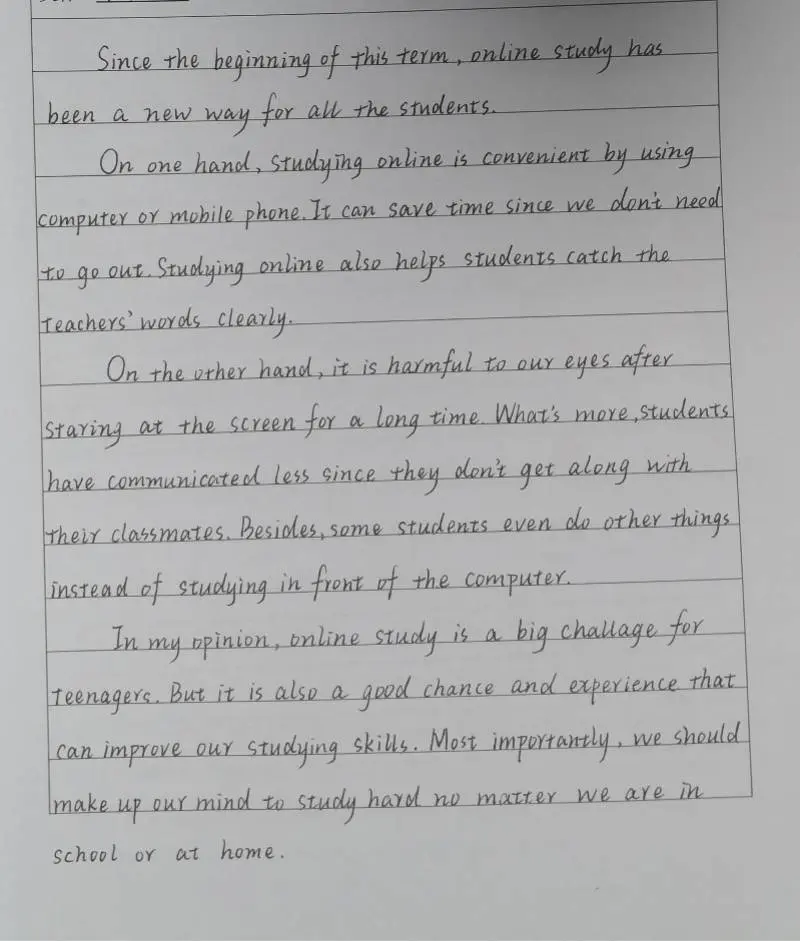 Since the beginning of this term, online study has
been a new way for all the students.
On one hand, studying online is convenient by using
computer or mobile phone. It can save time since we don't need
to go out. Studying online also helps students catch the
teachers' words clearly.
On the other hand, it is harmful to our eyes after
staring at the screen for a long time. What's more, students
have communicated less since they don't get along with
their classmates. Besides, some students even do other things
instead of studying in front of the computer.
In my opinion, online study is a big challage for
teenagers. But it is also a good chance and experience that
can improve our studying skills. Most importantly, we should
make up our mind to study hard no matter we are in
school or at home.